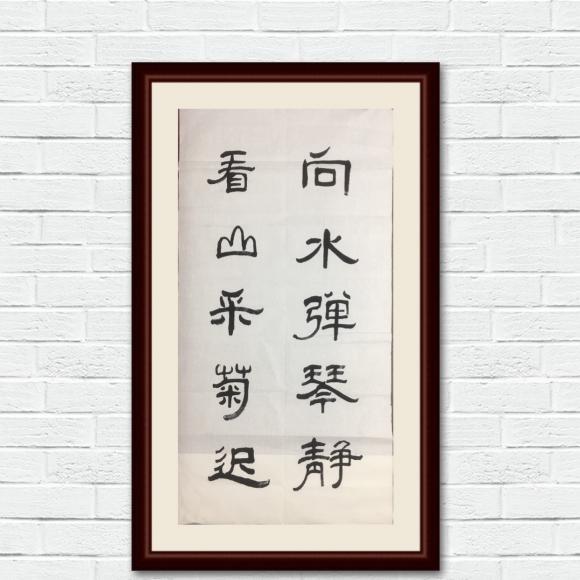 向水弹琴静
看山采菊迟